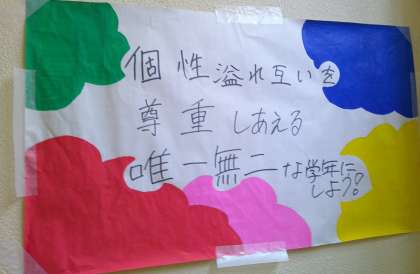 個性溢れ互いを
尊重しあえる
唯一無二な学年に
しよう!